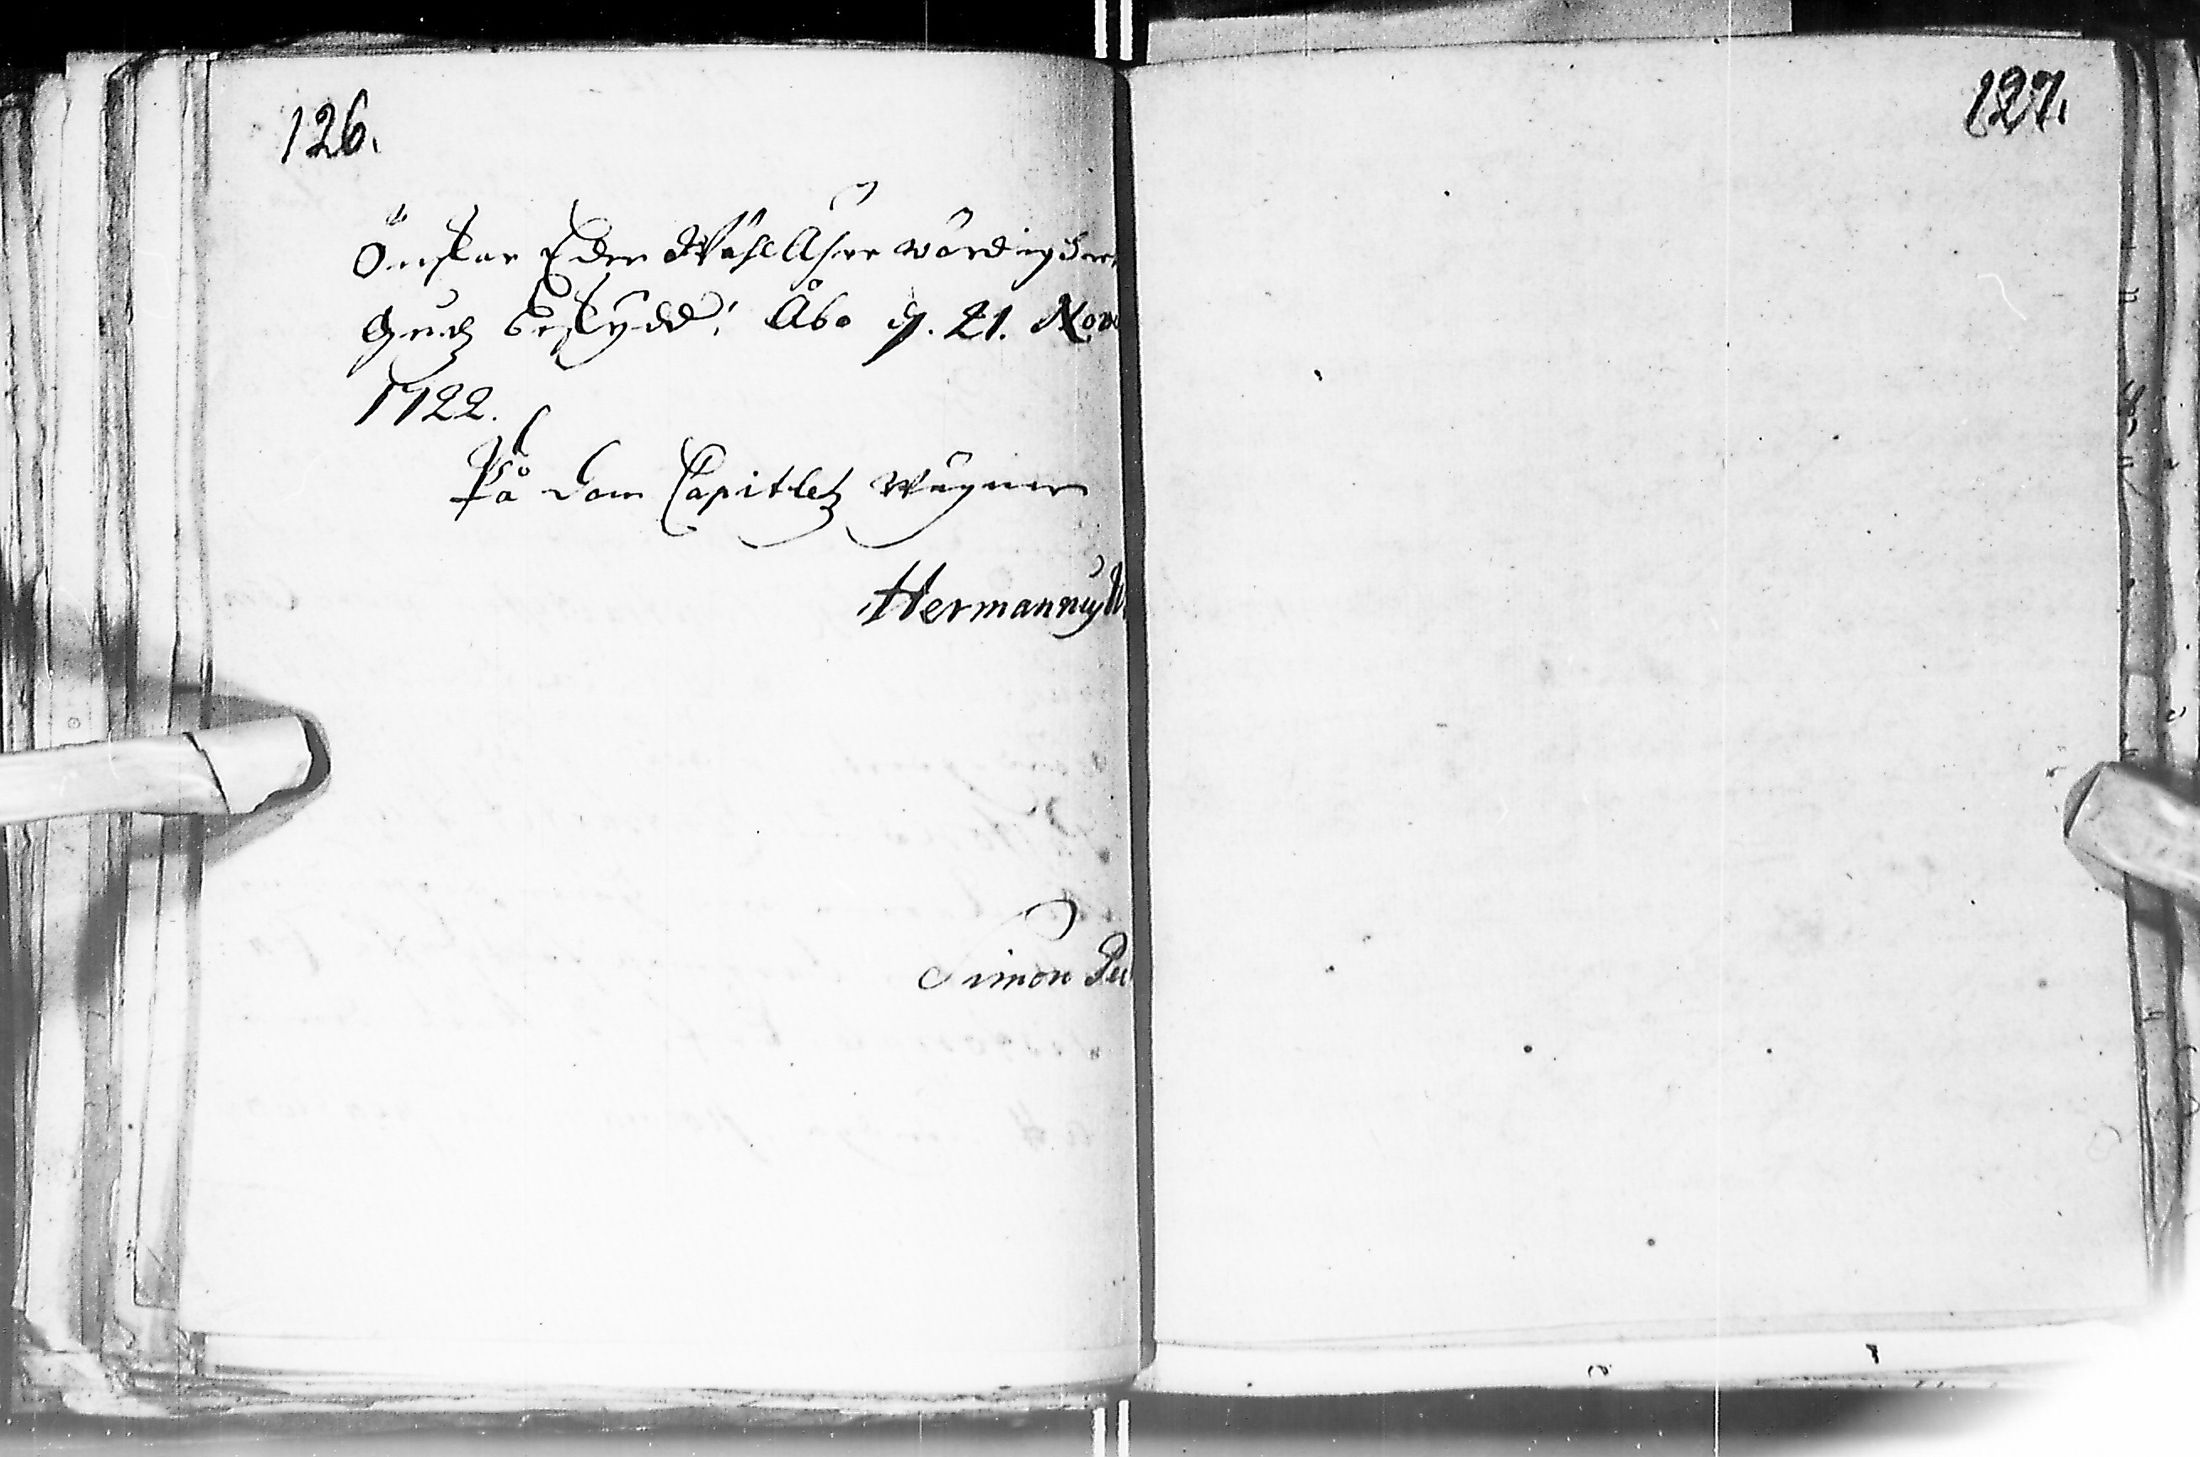 126.
Önskar Eder WählÄhrewördigheet
Gudz beskydd! Åbo d. 21. Nov
1722.
På Dom Capitletz wägnar
Hermannus W
Simon Pu
127.